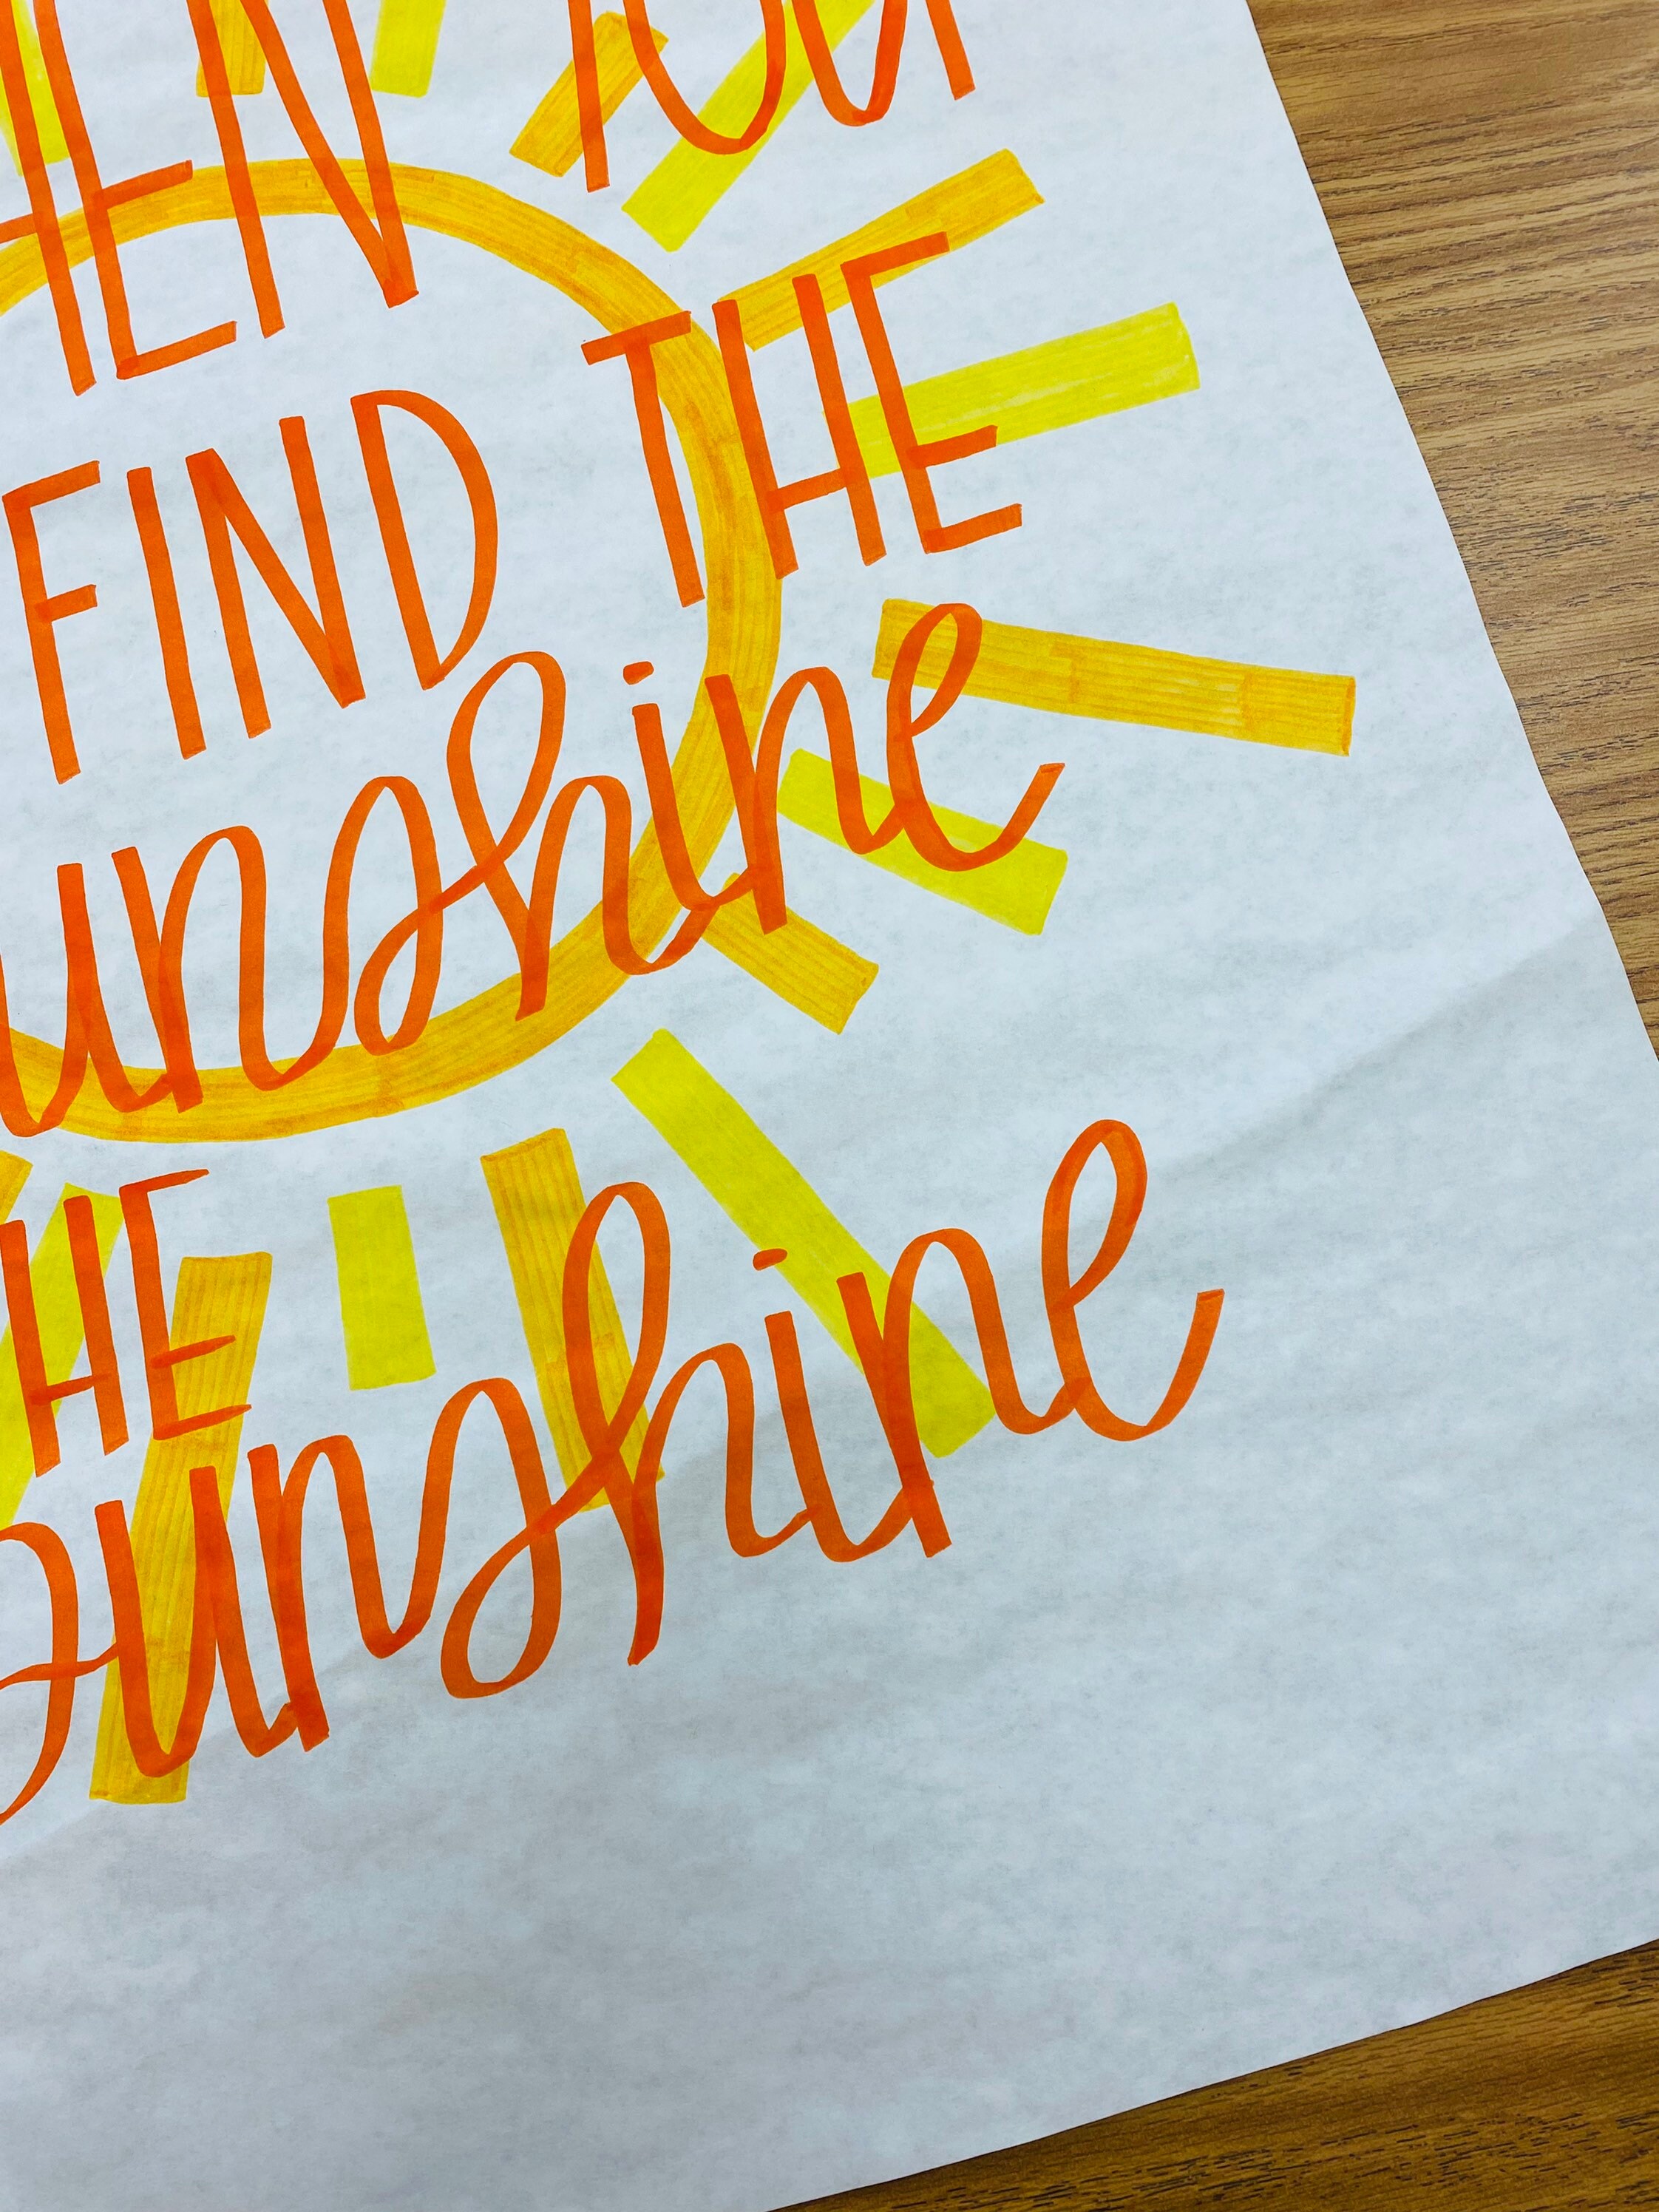 HEN YOU
FIND THE
unshine
HE
sunshine